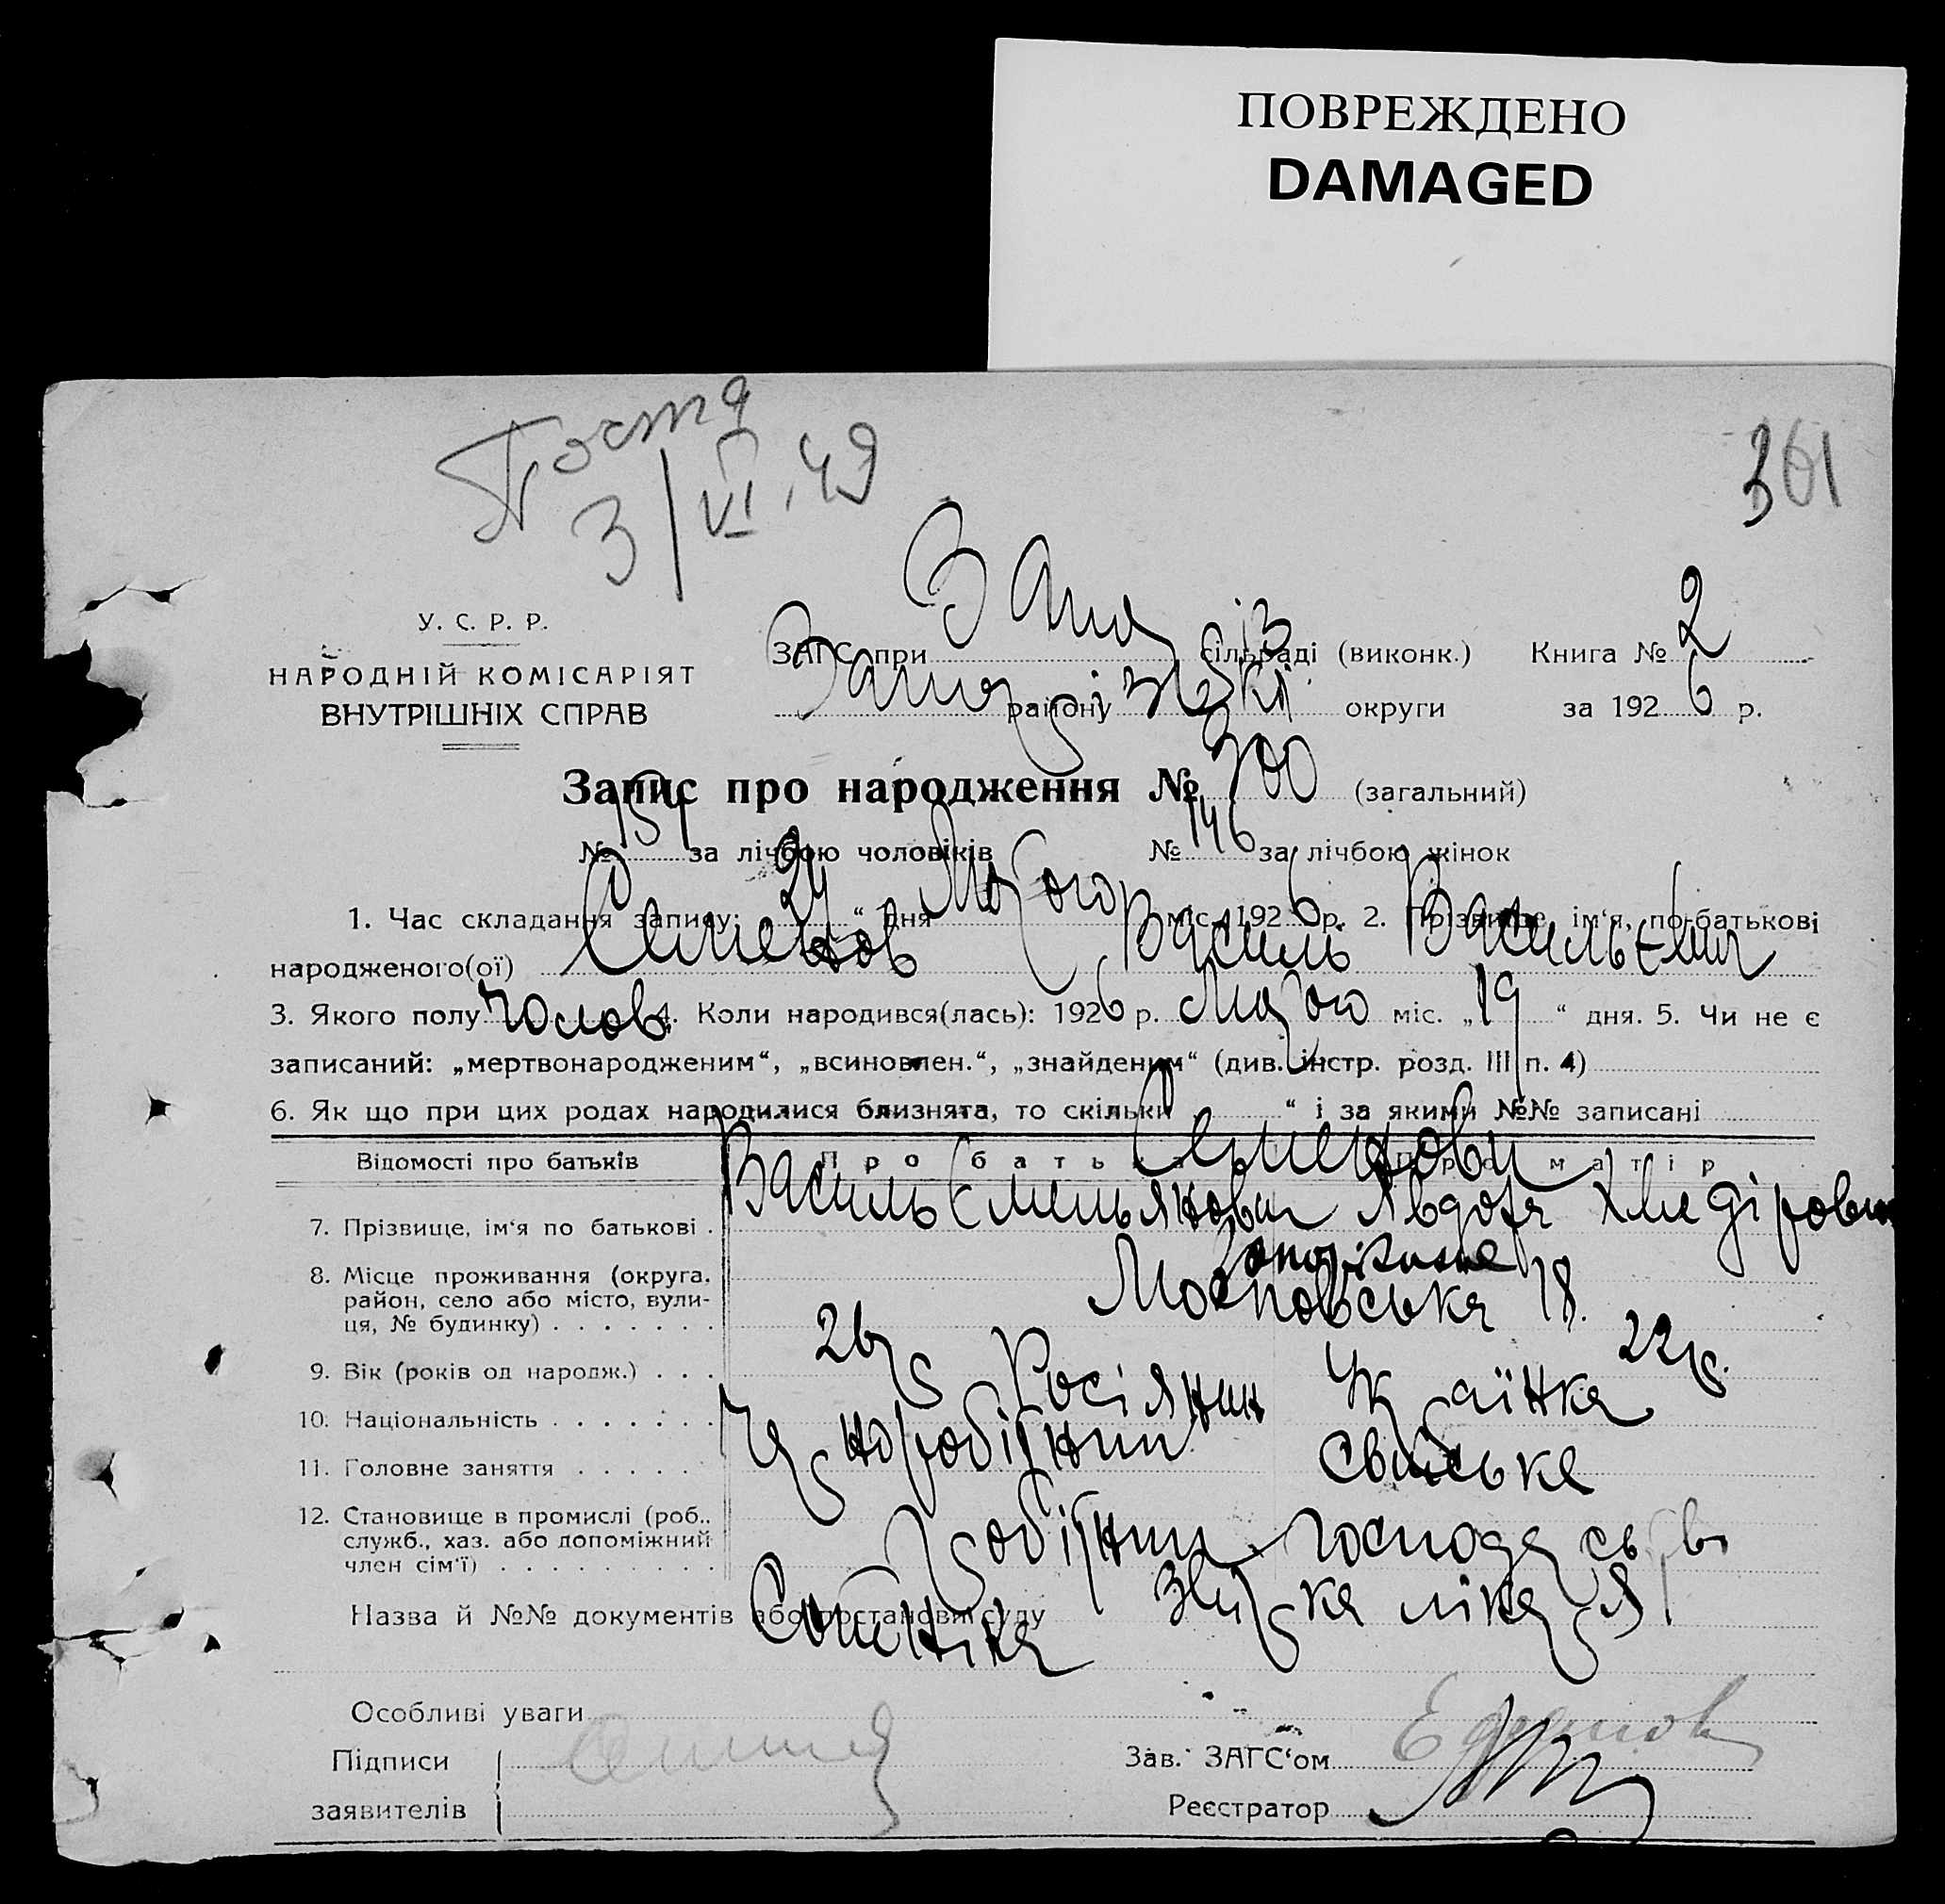 ПОВРЕЖДЕНО
DAMAGED
Пошта
3/VI.49
361
У. С. Р. Р.
НАРОДНІЙ КОМІСАРІЯТ
ВНУТРІШНІХ СПРАВ
ЗАГС при сільраді (виконк.) Книга № 2
району округи за 1926 р.
Запис про народження № 300 (загальний)
№ 154 за лічбою чоловіків № 146 за лічбою жінок
1. Час складання запису: 24 “ дня Лютого міс. 1926 р. 2. Прізвище, ім‘я, по-батькові
народженого(ої) Семенов Василь Васильєвич
3. Якого полу Чолов. 4. Коли народився(лась): 1926 р. Лютого міс. „19“ дня. 5. Чи не є
записаний: „мертвонародженим“, „всиновлен.“, „знайденим“ (див. інстр. розд. III п. 4)
6. Як що при цих родах народилися близнята, то скільки “ і за якими №№ записані
Відомості про батьків Про батька Про матір
Семенови
7. Прізвище, ім‘я по батькові . Василь Омельянович Явдоха
8. Місце проживання (округа, район, село або місто, вулиця, № будинку) Московська 18.
9. Вік (років од народж.) . . . 26 р 22 р.
10. Національність Росіянин Українка
11. Головне заняття Чорноробітник свійське
12. Становище в промислі (роб., служб., хаз. або допоміжний член сім‘ї) Робітник господарсьтво
Назва й №№ документів або постанови суду лікаря
Особливі уваги
Підписи
заявителів
Зав. ЗАГС‘ом
Реєстратор